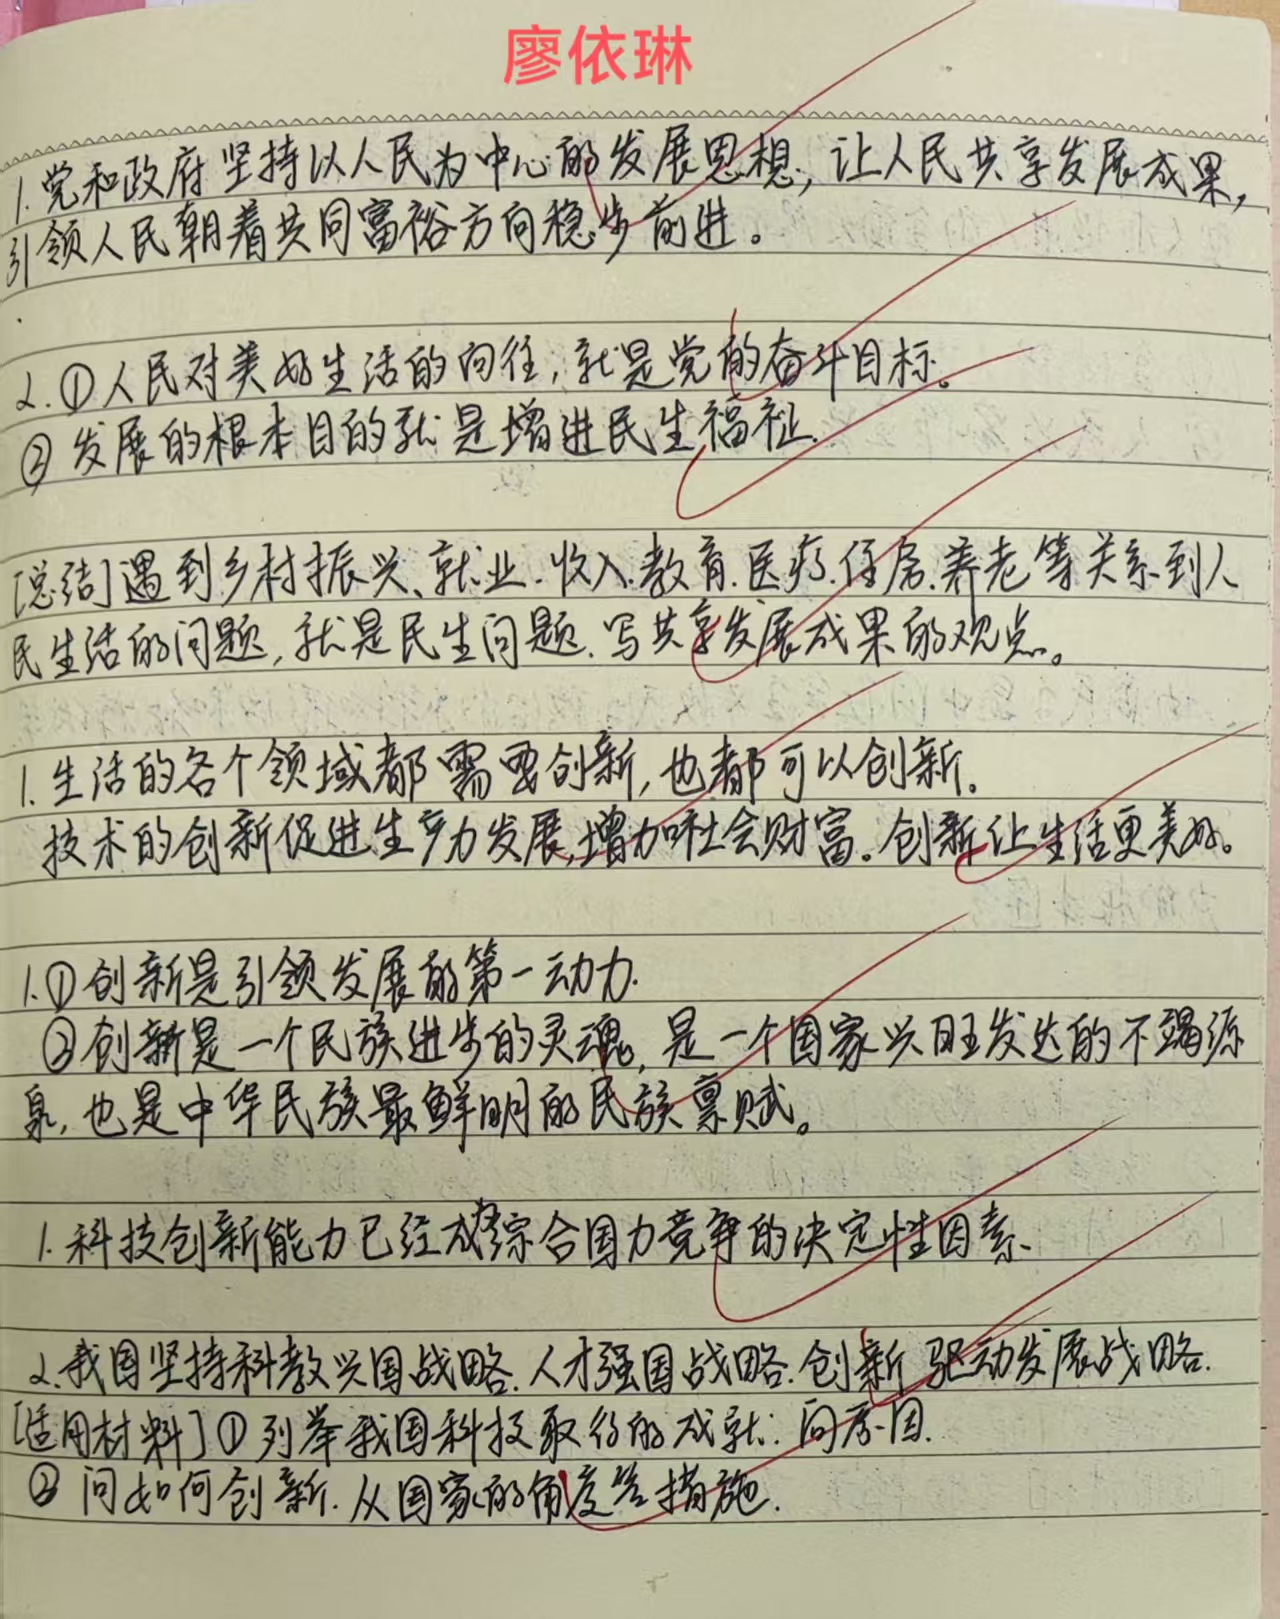 廖依琳
1.党和政府坚持以人民为中心的发展思想,让人民共享发展成果,
引领人民朝着共同富裕方向稳步前进。
2.①人民对美好生活的向往,就是党的奋斗目标。
②发展的根本目的就是增进民生福祉.
[总结]遇到乡村振兴、就业.收入.教育.医疗.住房.养老等关系到人
民生活的问题,就是民生问题.写共享发展成果的观点。
1.生活的各个领域都需要创新,也都可以创新。
技术的创新促进生产力发展,增加社会财富。创新让生活更美好。
1.①创新是引领发展的第一动力.
②创新是一个民族进步的灵魂,是一个国家兴旺发达的不竭源
泉,也是中华民族最鲜明的民族禀赋。
1.科技创新能力已经成为综合国力竞争的决定性因素.
2.我国坚持科教兴国战略.人才强国战略.创新驱动发展战略.
[适用材料]①列举我国科技取得的成就:问原因.
②问如何创新.从国家的角度答措施.